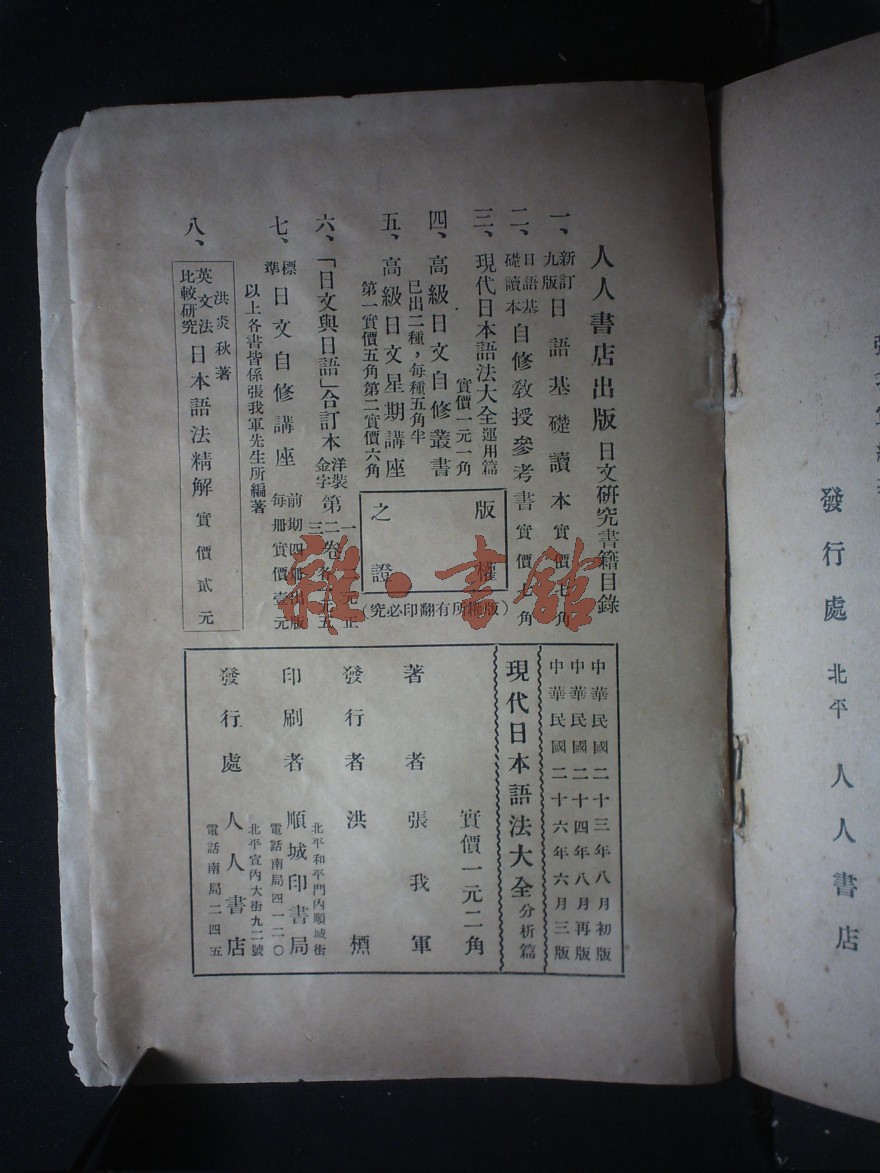 人人書店出版日文研究書籍目錄
一、新訂九版日語基礎讀本實價七角
二、日語基礎讀本自修教授參考書實價七角
三、現代日本語法大全運用篇
實價一元一角
四、高級日文自修叢書
已出二種，每種五角半
五、高級日文星期講座
第一實價五角第二實價六角
六、「日文與日語」合訂本洋裝金字第一二三卷各
七、標準日文自修講座前期四冊出版每冊實價壹元
以上各書皆係張我軍先生所編著
八、洪炎秋著
英文法比較研究日本語法精解實價貳元
版權
之證
(版權所有翻印必究)
中華民國二十三年八月初版
中華民國二十四年八月再版
中華民國二十六年六月三版
現代日本語法大全分析篇
實價一元二角
著者張我軍
發行者洪櫄
北平和平門內順城街
印刷者順城印書局
電話南局四一二〇
北平宣內大街九二號
發行處人人書店
電話南局二四五
發行處北平人人書店
雜·書館